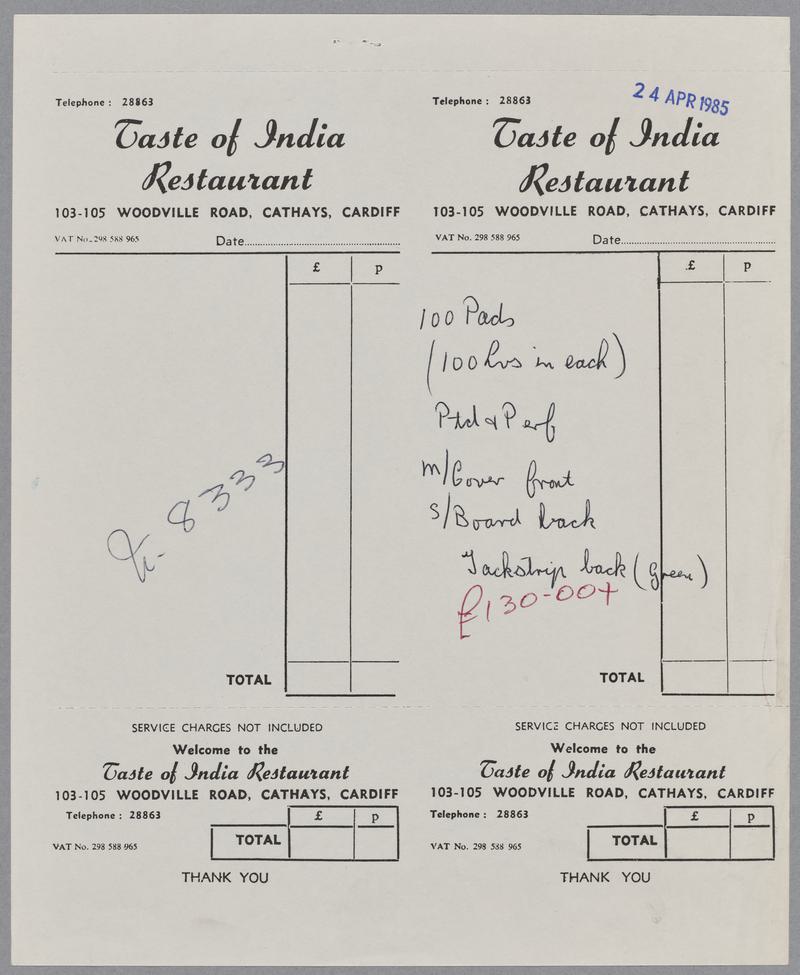 Telephone : 28863
Taste of India
Restaurant
103-105 WOODVILLE ROAD, CATHAYS, CARDIFF
VAT No. 298 588 965
Date
£ p
8333
TOTAL
SERVICE CHARGES NOT INCLUDED
Welcome to the
Taste of India Restaurant
103-105 WOODVILLE ROAD, CATHAYS, CARDIFF
Telephone : 28863
£ p
VAT No. 298 588 965
TOTAL
THANK YOU
24 APR 1985
Telephone : 28863
Taste of India
Restaurant
103-105 WOODVILLE ROAD, CATHAYS, CARDIFF
VAT No. 298 588 965
Date
£ p
100 Pads
(100 lvs in each)
Ptd & Perf
M/Cover front
S/Board back
Tackstrip back (Green)
£130-00+
TOTAL
SERVICE CHARGES NOT INCLUDED
Welcome to the
Taste of India Restaurant
103-105 WOODVILLE ROAD, CATHAYS, CARDIFF
Telephone : 28863
£ p
VAT No. 298 588 965
TOTAL
THANK YOU